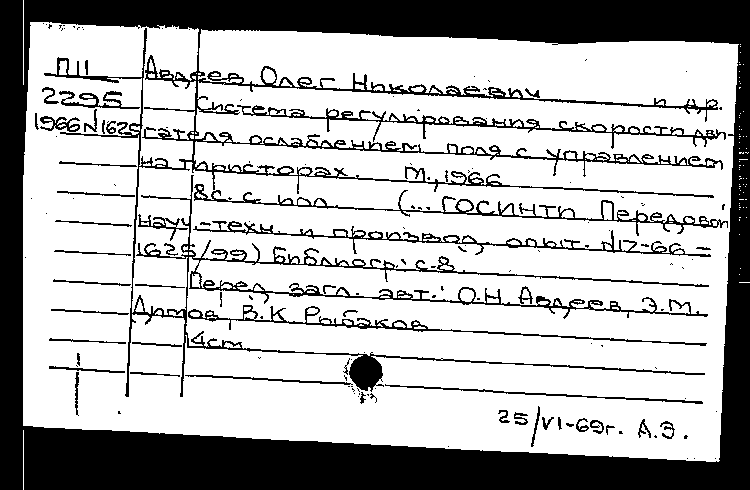 П11 Авдеев, Олег Николаевич и др.
2295 Система регулирования скорости дви-
1966 N1625 гателя ослаблением поля с управлением
на тиристорах. М., 1966
8с. с ил. (... ГОСИНТИ Передовой
науч.-техн. и производ. опыт. N12-66=
1625/99) Библиогр.: с.8.
Перед загл. авт.: О.Н. Авдеев, Э.М.
Аитов, В.К Рыбаков
14cm.
25/VI-69г. А.Э.